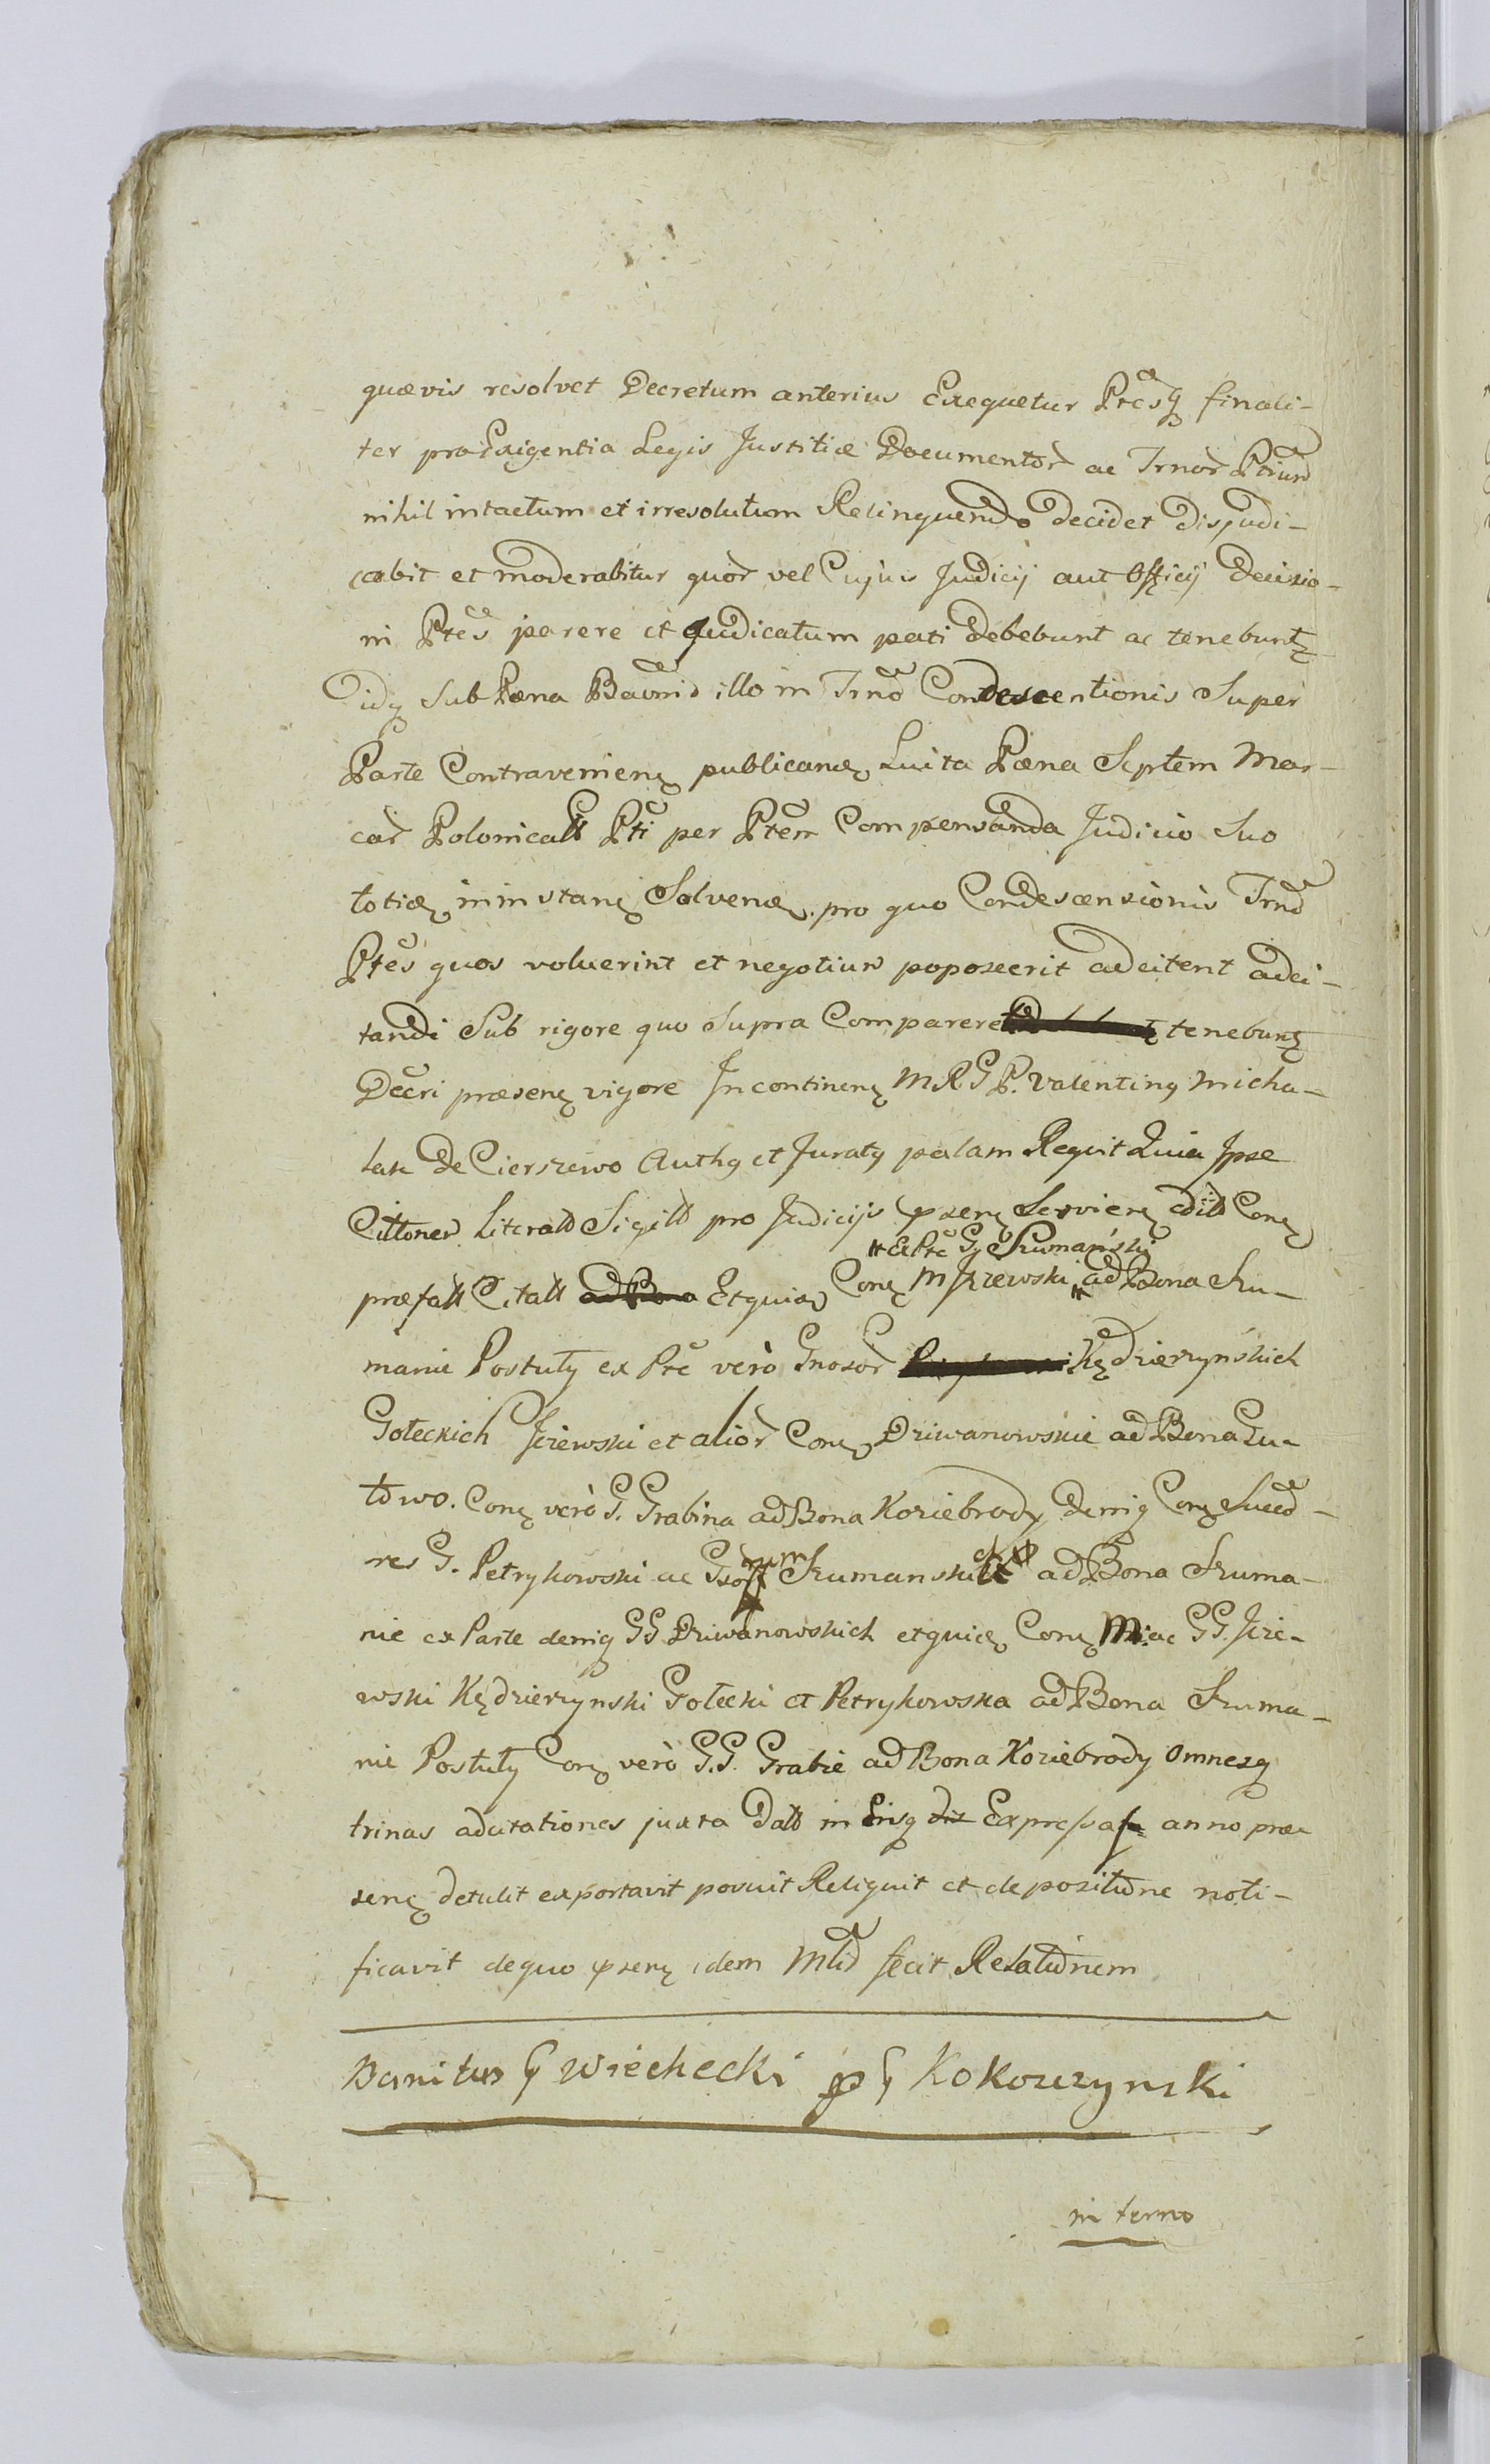 quævis resolvet Decretum anterius Exequetur Ptesq finali-
ter pro Exigentia Legis Justitiæ Documentor ac Trnor Ptium
nihil intactum et irresolutum Relinquendo decidet disjudi-
cabit et moderabitur quor vel Cujus Judicij aut Officij decisio-
ni Ptes parere et Judicatum pati debebunt ac tenebunt
idq Sub Pæna Bannis illo in Trno Condescentionis Super
Parte Contravenien publican Luita Pæna Septem Mar-
car Polonicall Pti per Ptem Compensanda Judicio Suo
toties in instan Solven pro quo Condescensionis Trno
Ptes quos voluerint et negotium poposcerit adcitent adci-
tandi Sub rigore quo Supra Comparere tenebunt
Decri præsen vigore Incontinen M R G P. Valentinq Micha-
lak de Cierszewo Authq et Juratq palam Reqvit Quia Ipse
Cittones Literatt Sigill pro Judicijs psen Servien edit Con
præfatt Citatt ad Bona Et quia Con M Jżewski ad Bona Szu-
Ex Pte G Szumański
manie Postuły ex Pte verò Gnosor Kędzierzynskich
Gołeckich Jżewski et alior Con Dziwanowskie ad Bona Gu-
towo. Con verò G. Grabina ad Bona Koziebrody deniq Con Succo-
res G. Petrykowski ac Szumanski ad Bona Szuma-
nie ex Parte deniq GG Dziwanowskich et quia Con M. ac GG. Jże-
wski Kędzierzynski Gołecki et Petrykowska ad Bona Szuma-
nie Postuły Con verò G.G. Grabie ad Bona Koziebrody Omnesq
trinas adcitationes juxta Datt in Eisq Expressas anno præ
sen detulit exportavit posuit Reliquit et de positione noti-
ficavit de quo psen idem Mlis fecit Relationem
Banitus G Wiechecki p G Kokoszynski
in terno